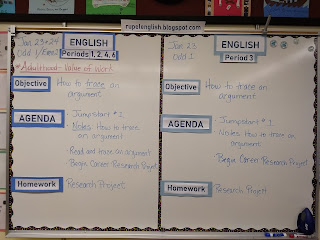 rupofenglish.blogspot.com
Jan 23 & 24
Odd 1/Even 2
ENGLISH
Periods 1, 2, 4, 6
*Adulthood: Value of Work
Objective
How to trace an
argument
AGENDA
· Jumpstart #1
· Notes: How to trace
an argument
· Read and trace an argument
· Begin Career Research Project
Homework
Research Project
Jan 23
Odd 1
ENGLISH
Period 3
Objective
How to trace an
argument
AGENDA
· Jumpstart #1
· Notes: How to trace an
argument
· Begin Career Research Project
Homework
Research Project